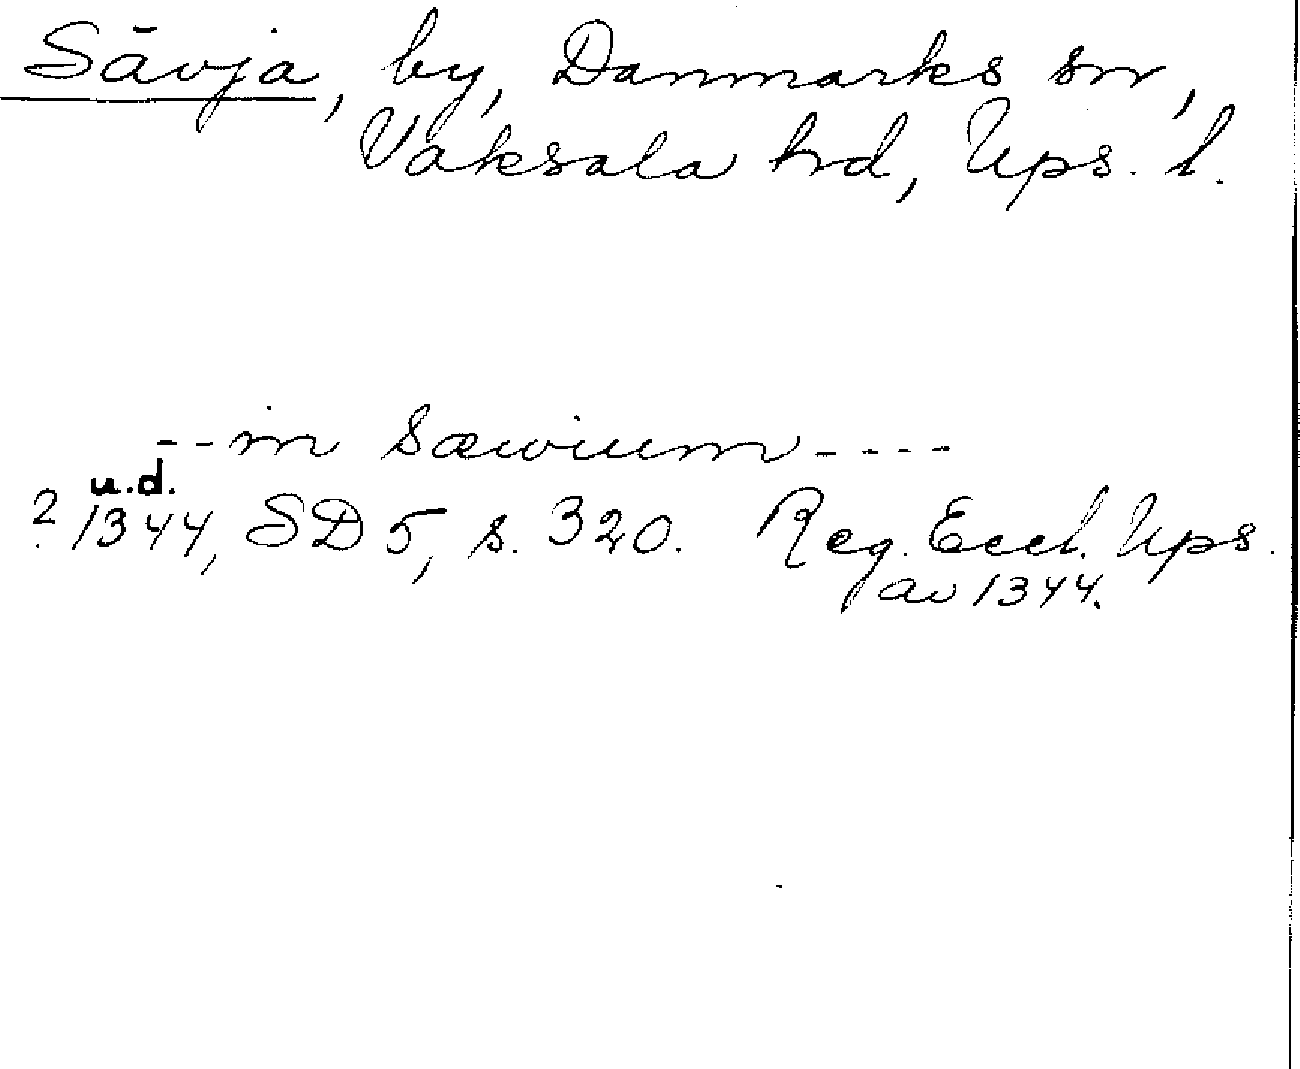 Sävja, by, Danmarks sn,
Vaksala hd, Ups. l.
--in sæwium----
u.d.
? 1344, SD 5, s. 320. Reg. Eccl. Ups.
av 1344.